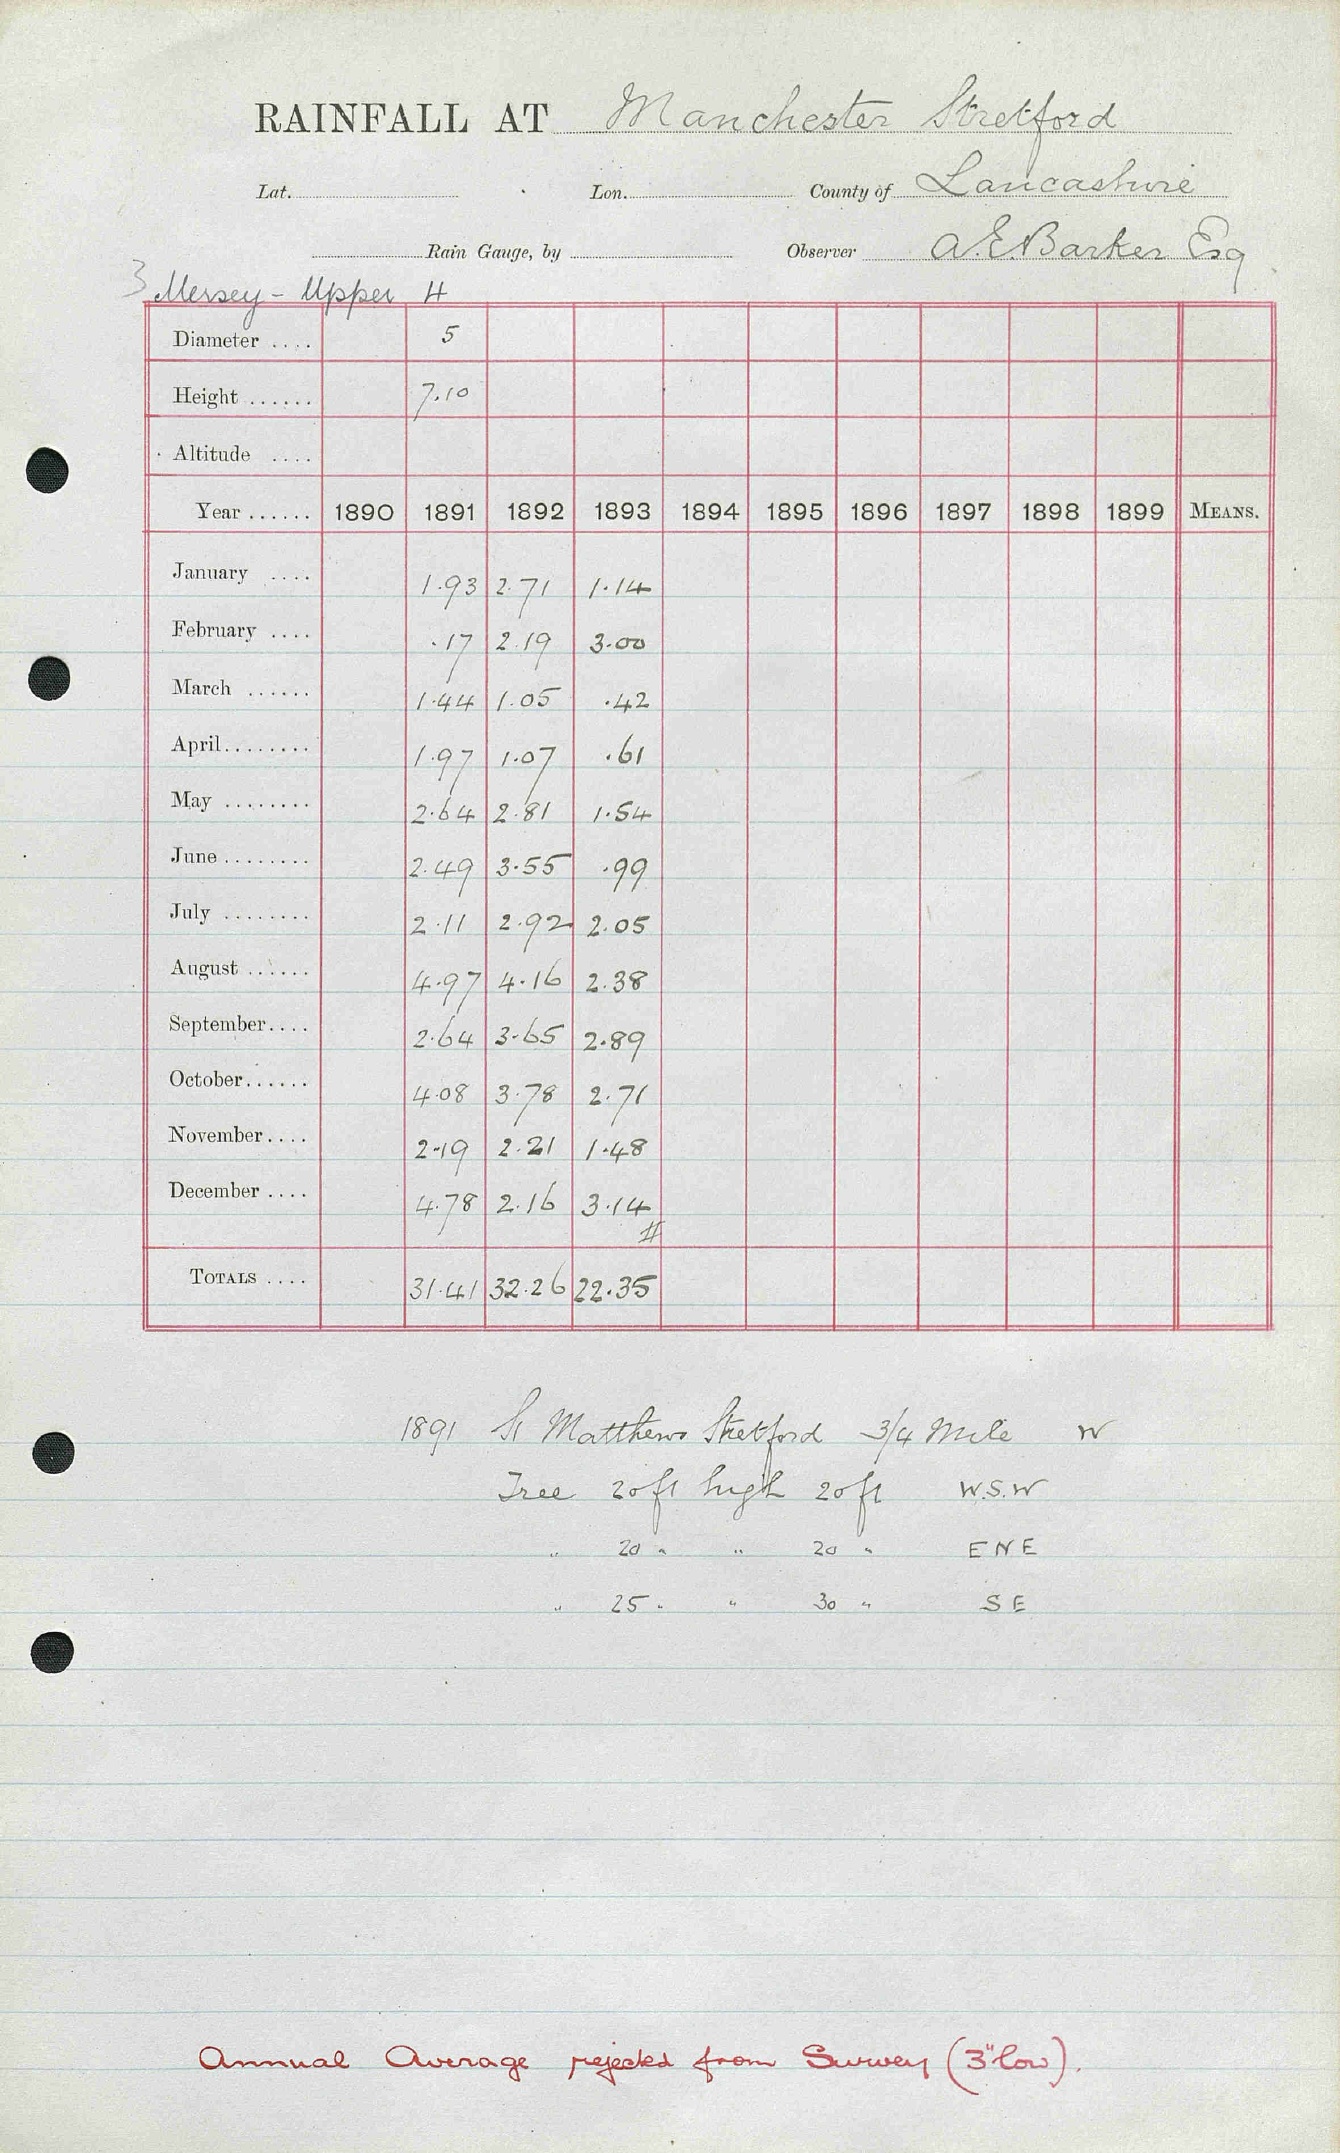 RAINFALL AT Manchester Stretford
Lat. Lon. County of Lancashire
Rain Gauge, by Observer A.E. Barker Esq
3 Mersey - Upper 4
Diameter .... 5
Height ...... 7.10
Altitude ....
Year ...... 1890 1891 1892 1893 1894 1895 1896 1897 1898 1899 MEANS.
January .... 1.93 2.71 1.14
February .... .17 2.19 3.00
March ...... 1.44 1.05 .42
April ........ 1.97 1.07 .61
May ........ 2.64 2.81 1.54
June ........ 2.49 3.55 .99
July ........ 2.11 2.92 2.05
August ...... 4.97 4.16 2.38
September .... 2.64 3.65 2.89
October ...... 4.08 3.78 2.71
November .... 2.19 2.21 1.48
December .... 4.78 2.16 3.14
#
TOTALS .... 31.41 32.26 22.35
1891 St Matthews Stretford 3/4 Mile W
Tree 20ft high 20ft W.S.W
" 20 " " 20 " E N E
" 25 " " 30 " S E
Annual Average rejected from Survey (3" low).